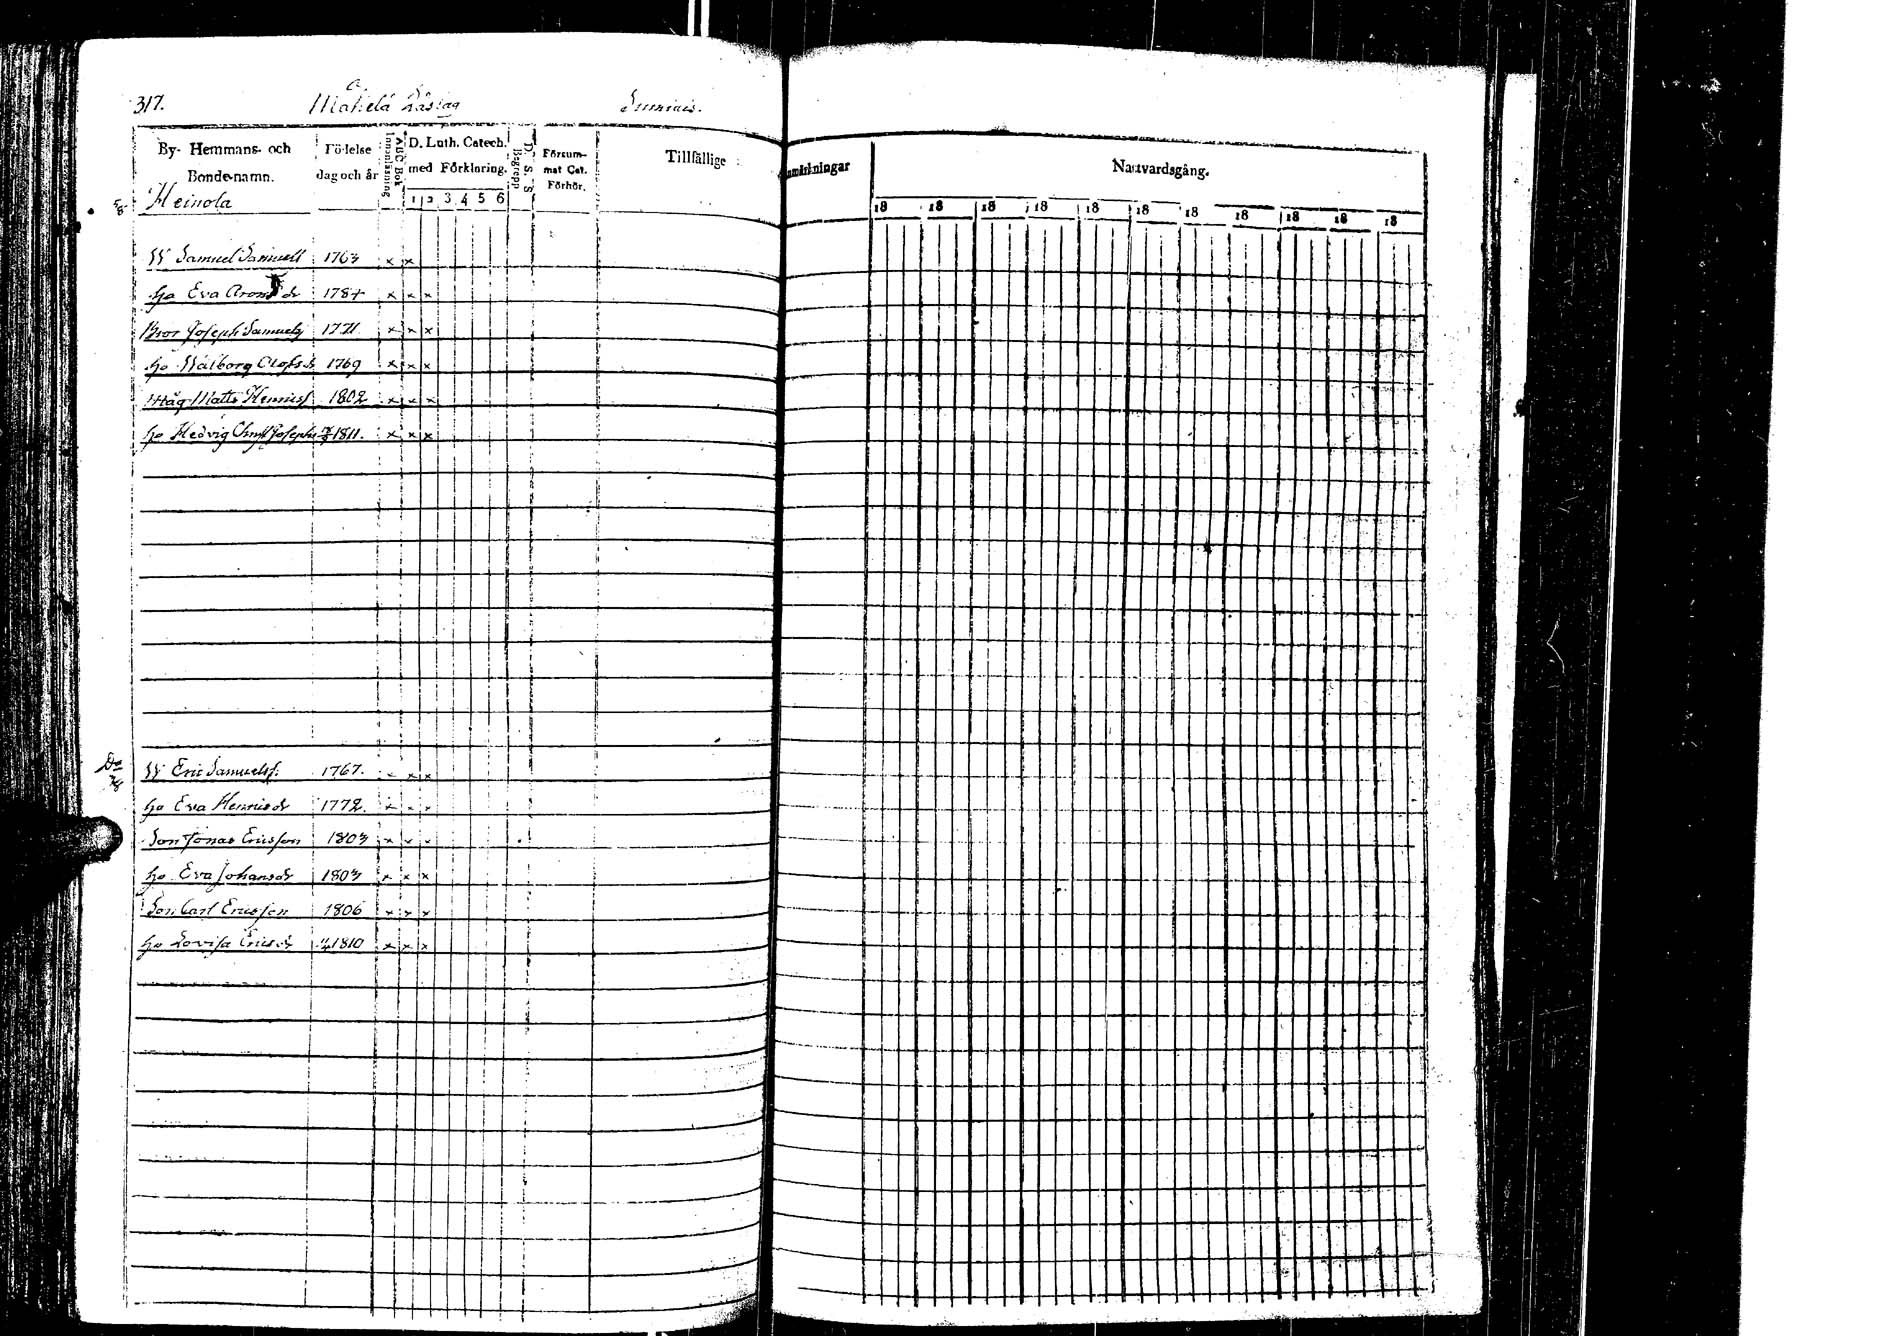 317. Mahelä Låslag Sumiais.
By- Hemmans- och Bonde-namn. Födelse dag och år Innanläsning ABC Bok D. Luth. Catech. med Förklaring. D. S. S. Begrepp Försummat Cat. Förhör. Tillfällige Anmärkningar Nattvardsgång.
1 2 3 4 5 6 18 18 18 18 18 18 18 18 18 18 18
5/8 Heinola
W Samuel Samuell 1763 x x
ho Eva Arons dr 1784 x x x
Bror Joseph Samuels 1771 x x x
ho Walborg Olofs dr 1769 x x x
Måg Matts Henricss 1802 x x x
ho Hedvig Josephs 1811. x x x
Do W Eric Samuelss. 1767. x x
ho Eva Henricsdr 1772. x x x
Son Jonas Ericsson 1803 x x x
ho Eva Johansdr 1803 x x x
Son Carl Ericsson 1806 x x x
ho Lovisa Ericsdr 1810 x x x